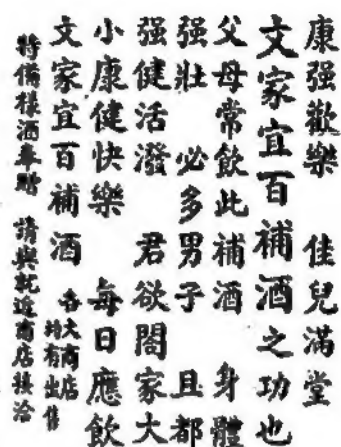 康强歡樂 佳兒滿堂
文家宜百補酒之功也
父母常飲此補酒 身體
强壯 必多男子 且都
强健活潑 君欲閤家大
小康健快樂 每日應飲
文家宜百補酒 各大商店均有出售
特備樣酒奉贈 請與就近商店接洽